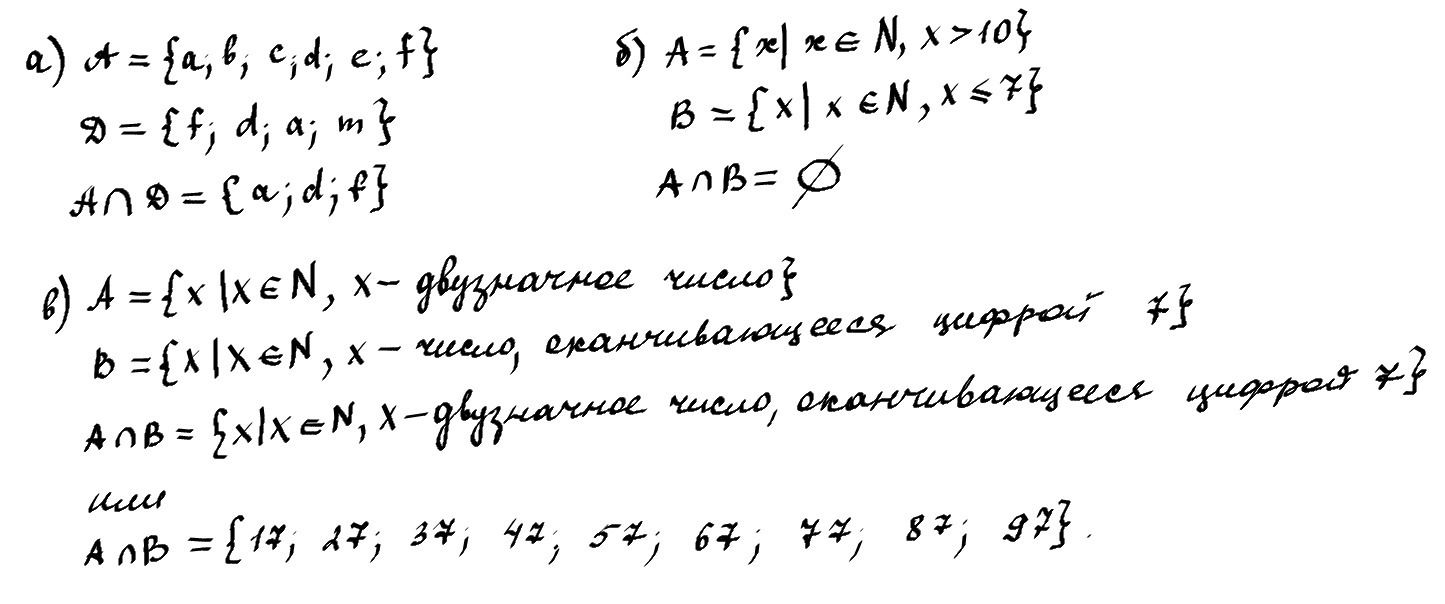 а) A = {a; b; c; d; e; f}
D = {f; d; a; m}
A ∩ D = {a; d; f}
б) A = {x | x ∈ N, x > 10}
B = {x | x ∈ N, x ⩽ 7}
A ∩ B = ∅
в) A = {x | x ∈ N, x – двузначное число}
B = {x | x ∈ N, x – число, оканчивающееся цифрой 7}
A ∩ B = {x | x ∈ N, x – двузначное число, оканчивающееся цифрой 7}
или
A ∩ B = {17; 27; 37; 47; 57; 67; 77; 87; 97}.